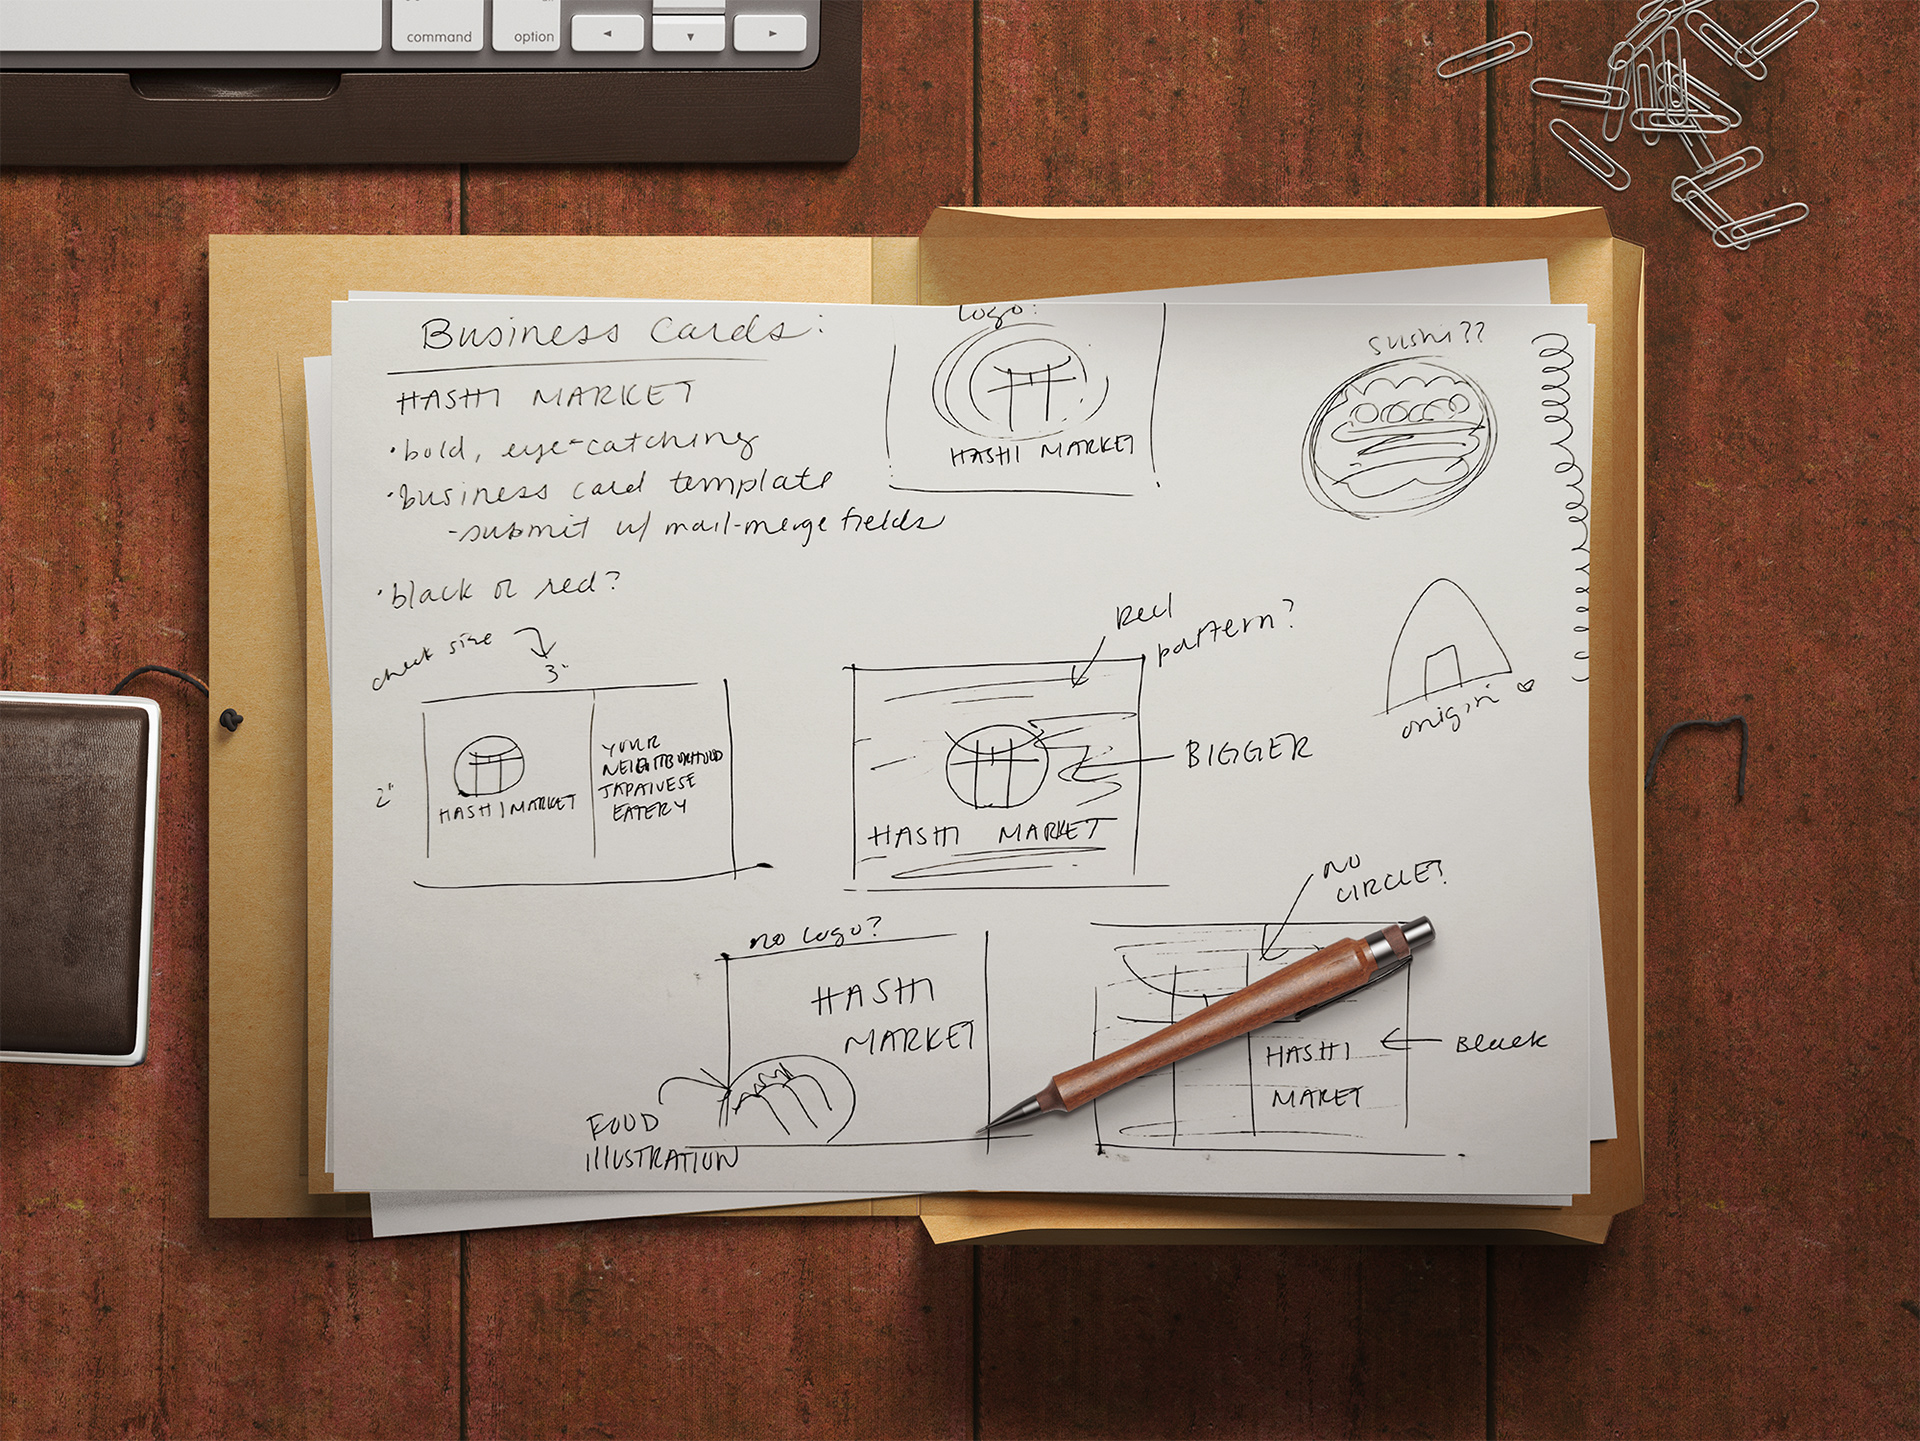 command
option
Business Cards:
HASHI MARKET
•bold, eye-catching
•business card template
-submit w/ mail-merge fields
•black or red?
logo:
HASHI MARKET
sushi??
check size
3"
2"
HASHI MARKET
YOUR
NEIGHBORHOOD
JAPANESE
EATERY
Red
pattern?
BIGGER
HASHI MARKET
onigiri
no logo?
HASHI
MARKET
FOOD
ILLUSTRATION
NO
CIRCLE?
HASHI
MARET
Black